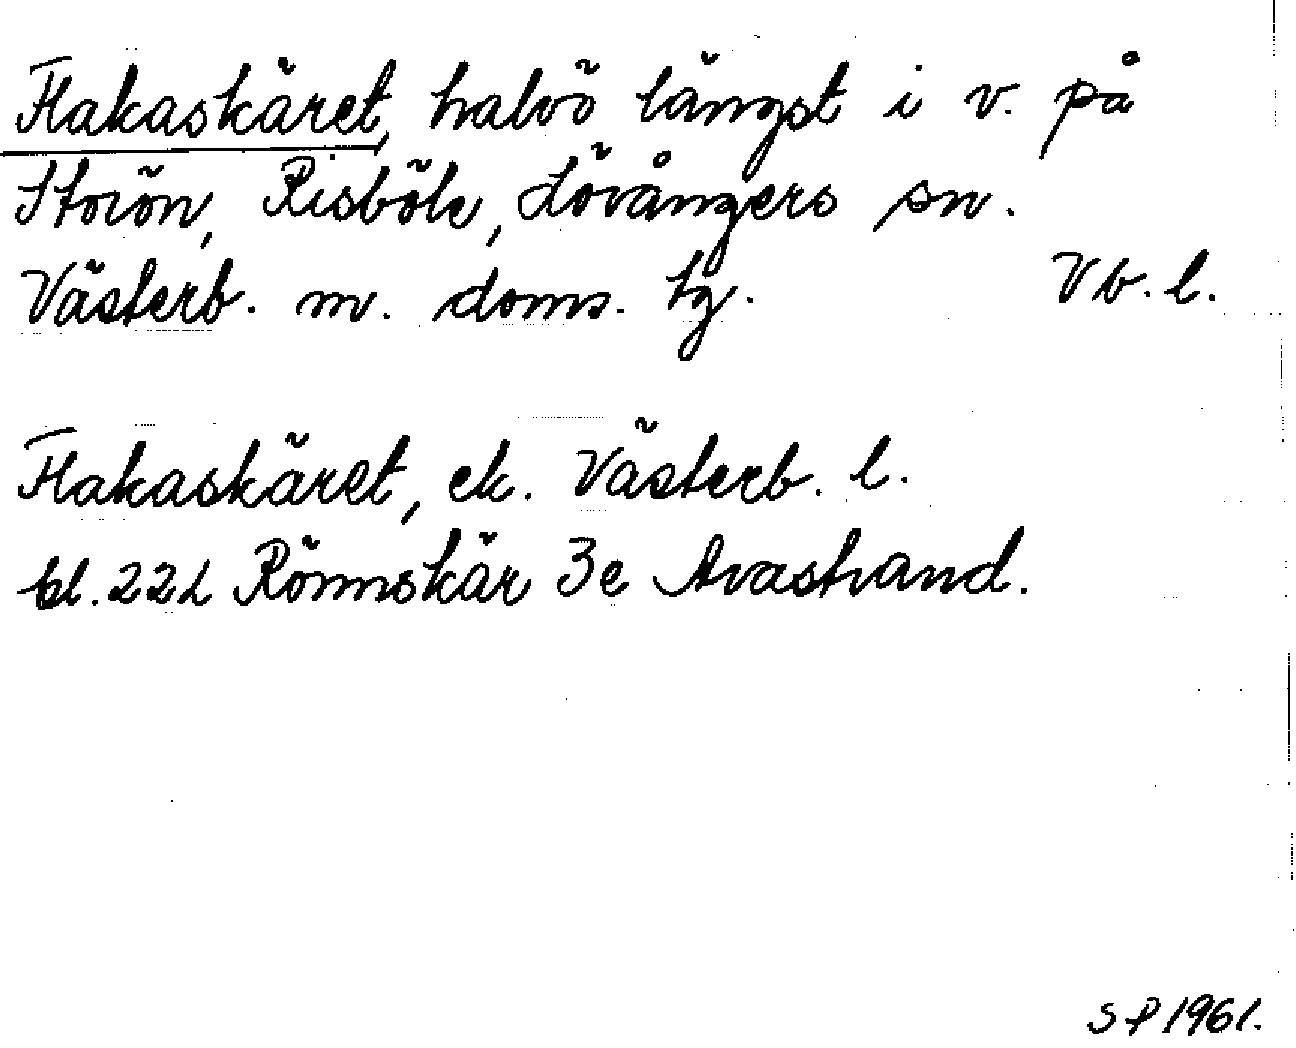 Flakaskäret, halvö längst i v. på
Storön, Risböle, Lövångers sn.
Västerb. m. doms. tg. Vb. l.
Flakaskäret, ek. Västerb. l.
bl. 22L Rönnskär 3e Avastrand.
SP 1961.